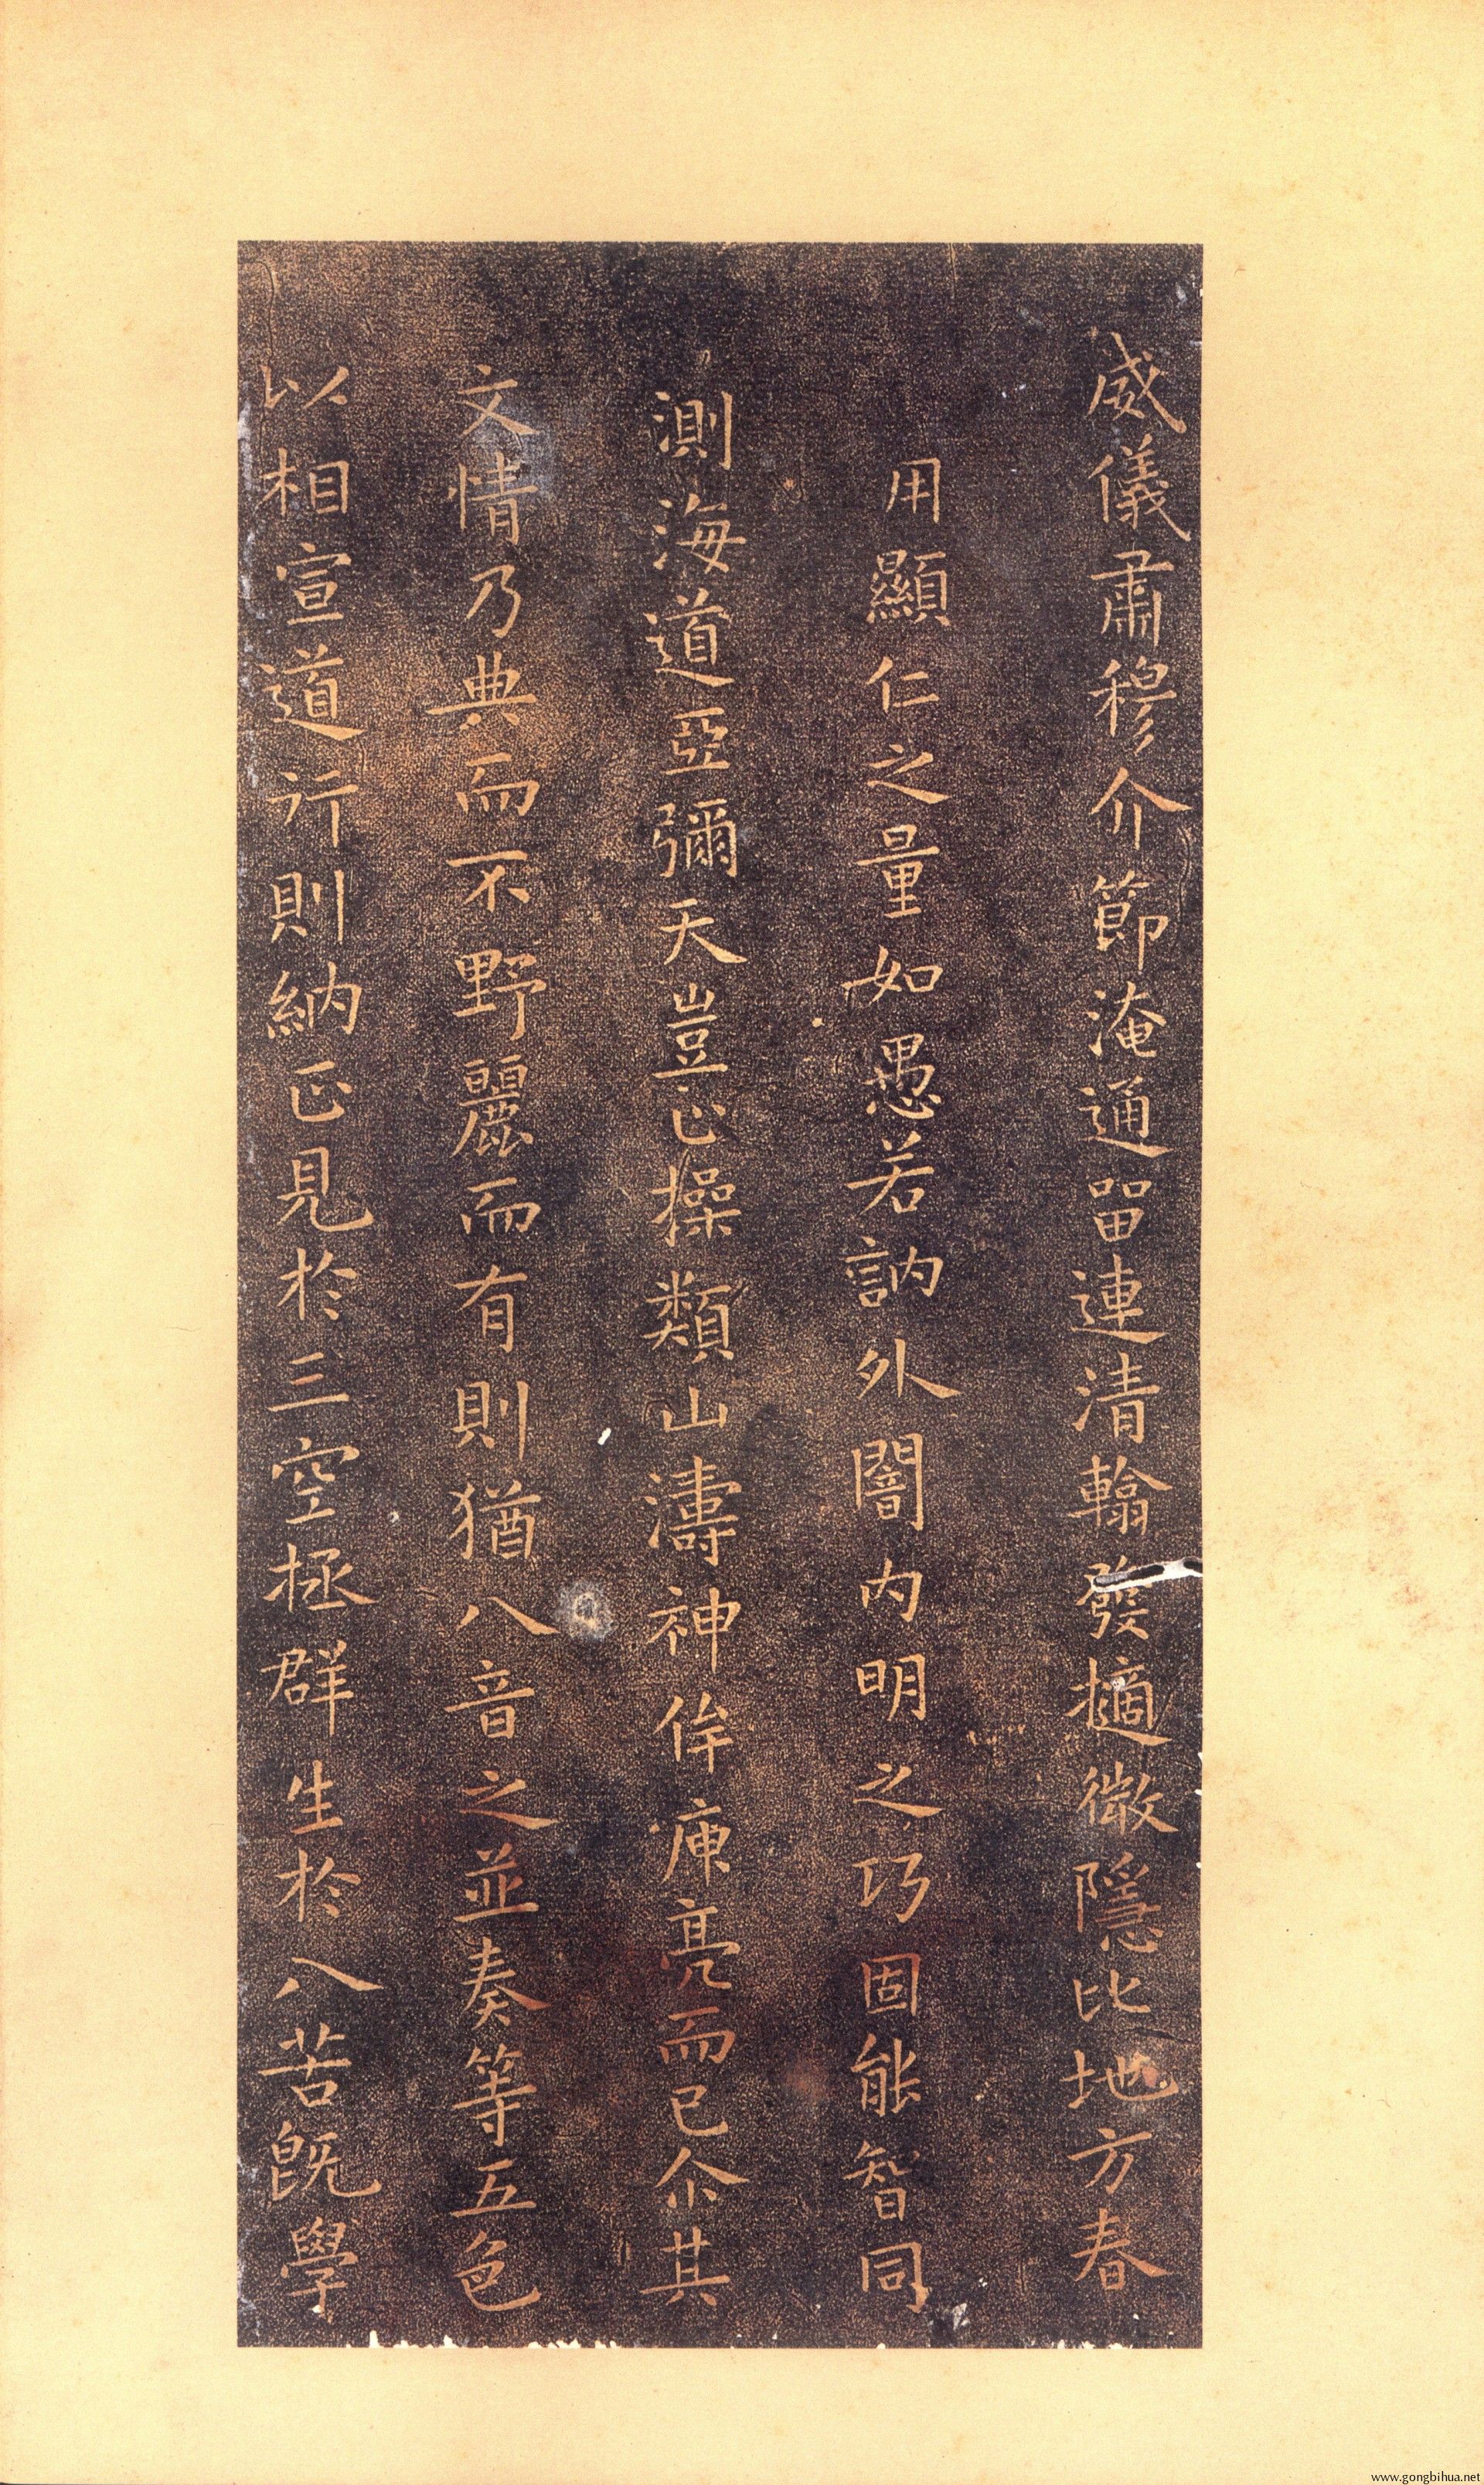 威儀肅穆介節淹通留連清翰發擿微隱比地方春
用顯仁之量如愚若訥外闇内明之巧固能智同
測海道亞彌天豈正操類山濤神侔庾亮而已尒其
文情乃典而不野麗而有則猶八音之並奏等五色
以相宣道行則納正見於三空拯群生於八苦旣學
www.gongbihua.net